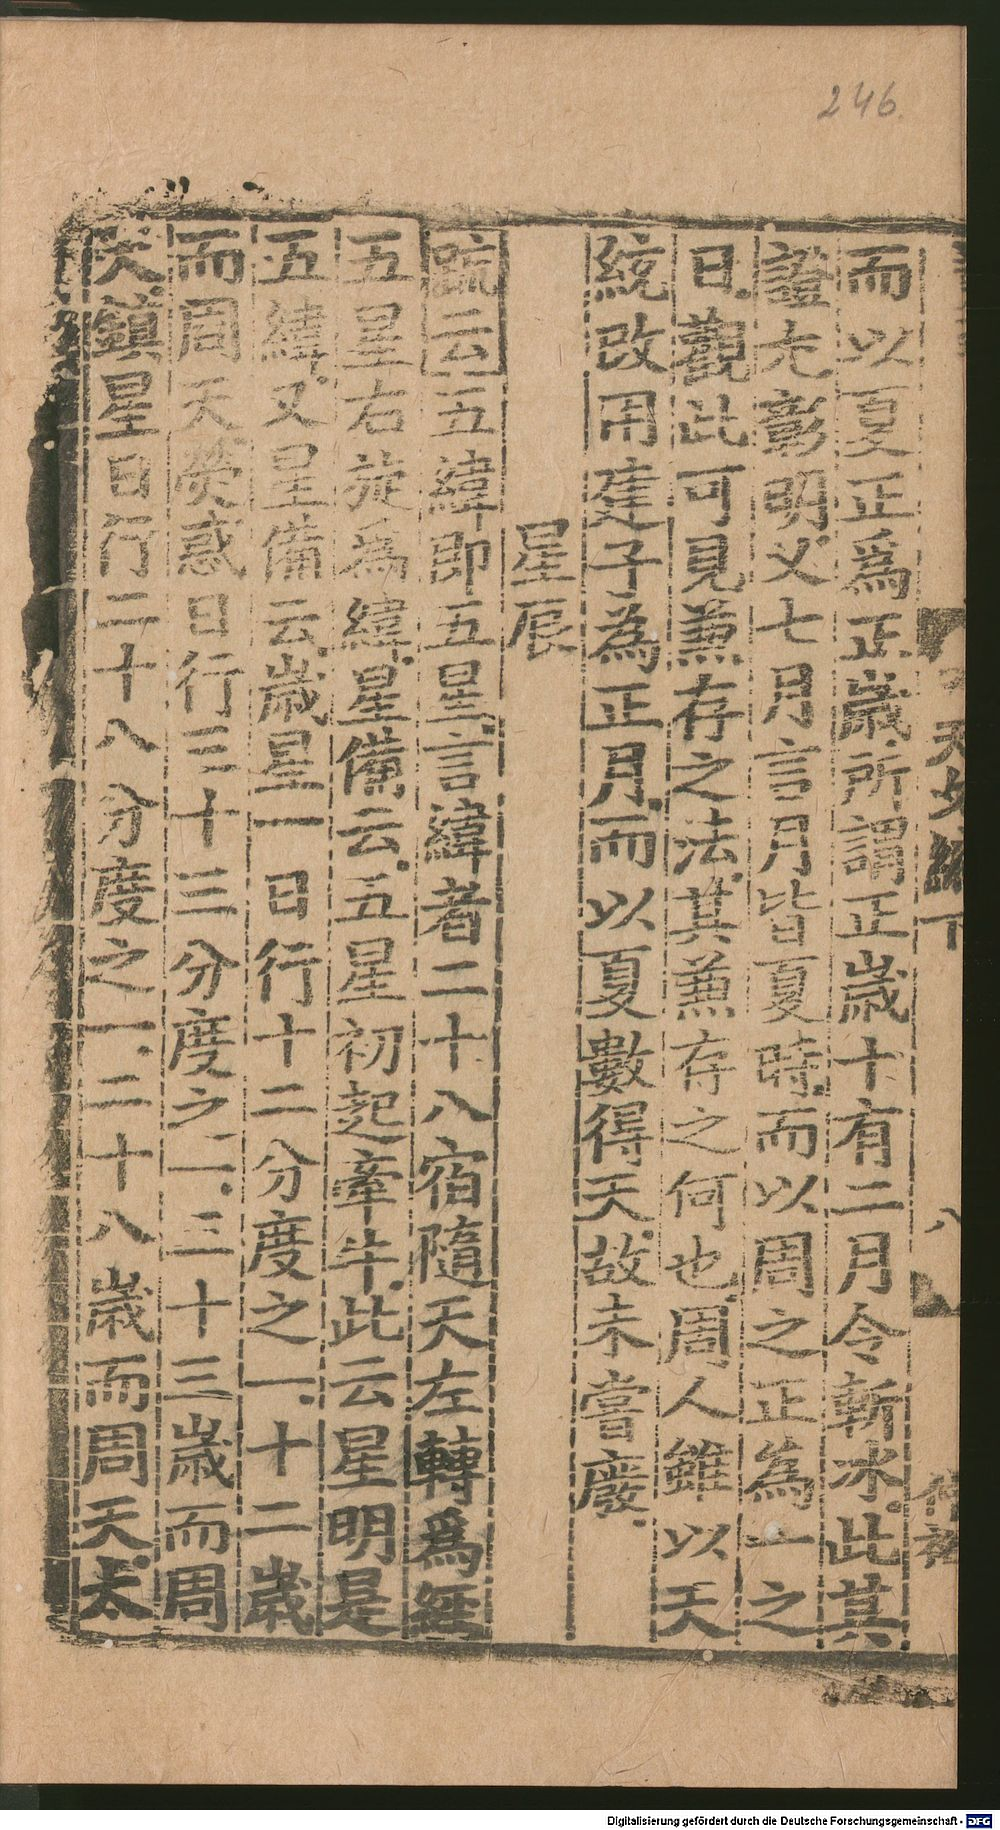 246
而以夏正爲正歲所謂正歲十有二月令斬冰此其
證尤彰明又七月言月皆夏時而以周之正爲一之
日觀此可見兼存之法其兼存之何也周人雖以天
統改用建子爲正月而以夏數得天故未嘗廢
星辰
疏云五緯即五星言緯者二十八宿隨天左轉爲經
五星右旋爲緯星備云五星初起牽牛此云星明是
五緯又星備云歲星一日行十二分度之一十二歲
而周天熒惑日行三十三分度之一三十三歲而周
天鎮星日行二十八分度之一二十八歲而周天太
天文 下
八
Digitalisierung gefördert durch die Deutsche Forschungsgemeinschaft - DFG